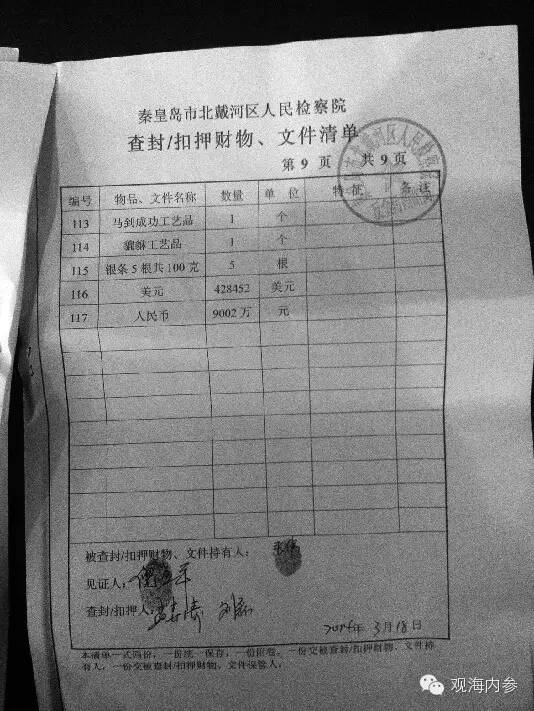 秦皇岛市北戴河区人民检察院
查封/扣押财物、文件清单
第 9 页 共 9 页
编号 物品、文件名称 数量 单 位 特 征 备 注
113 马到成功工艺品 1 个
114 貔貅工艺品 1 个
115 银条 5 根共 100 克 5 根
116 美元 428452 美元
117 人民币 9002 万 元
被查封/扣押财物、文件持有人：
见证人：
查封/扣押人：
3月18日
本清单一式四份，一份统一保存，一份附卷，一份交被查封/扣押财物、文件持
有人，一份交被查封/扣押财物、文件保管人。
观海内参